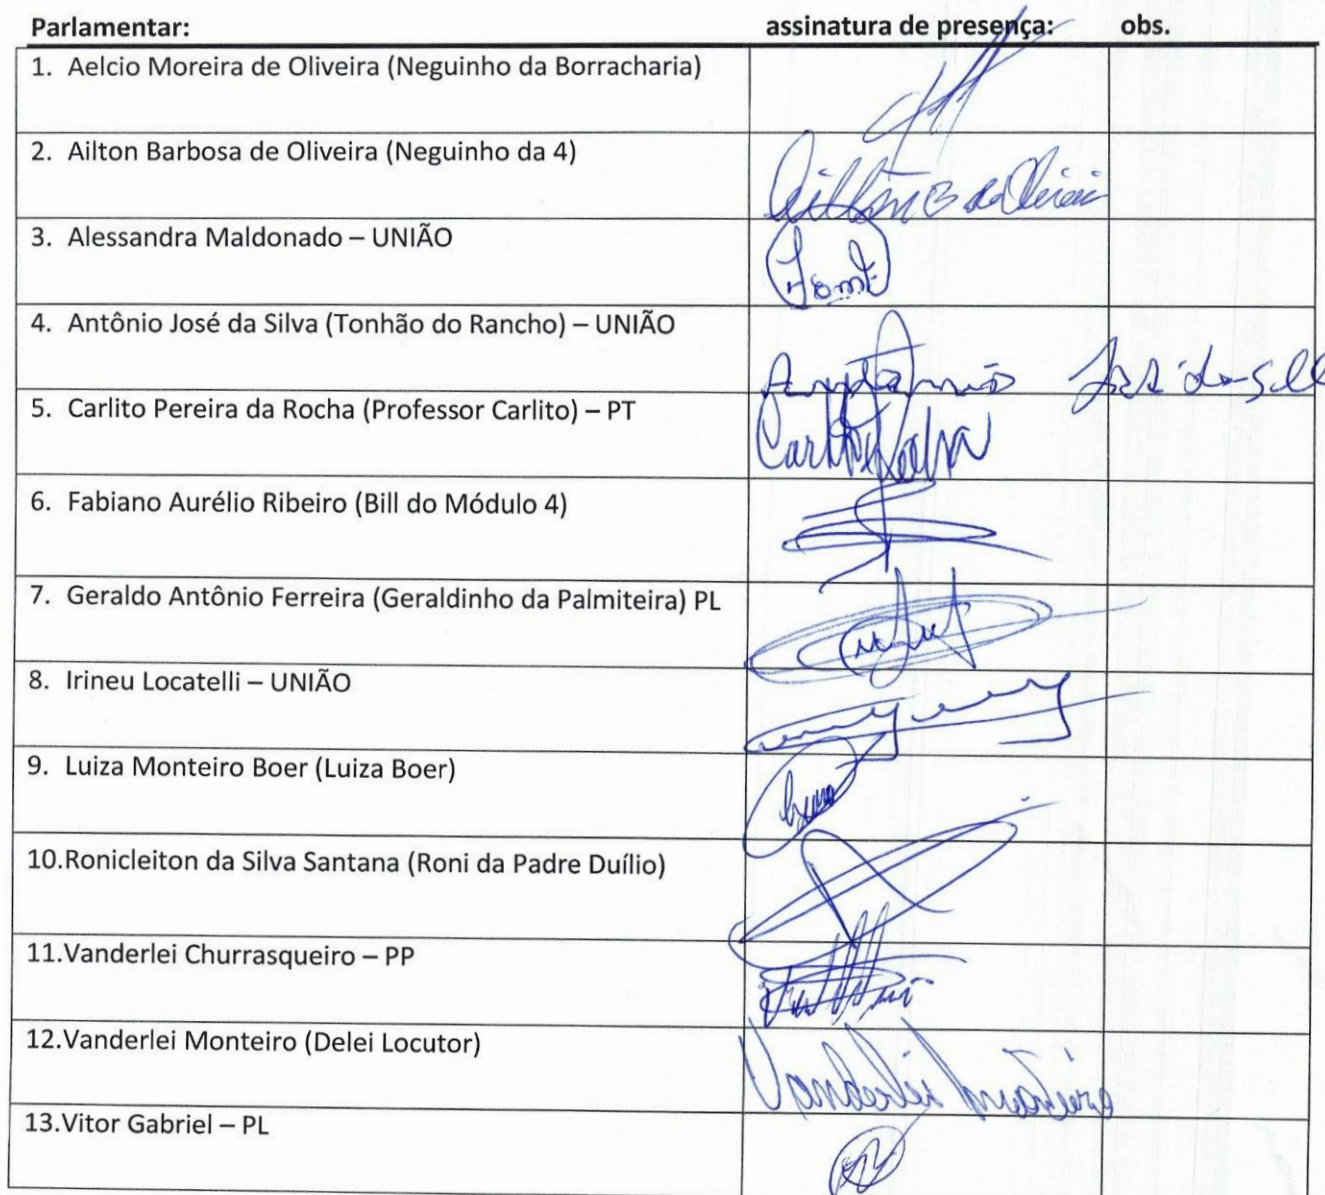 Parlamentar: assinatura de presença: obs.
1. Aelcio Moreira de Oliveira (Neguinho da Borracharia)
2. Ailton Barbosa de Oliveira (Neguinho da 4)
3. Alessandra Maldonado – UNIÃO
4. Antônio José da Silva (Tonhão do Rancho) – UNIÃO
5. Carlito Pereira da Rocha (Professor Carlito) – PT
6. Fabiano Aurélio Ribeiro (Bill do Módulo 4)
7. Geraldo Antônio Ferreira (Geraldinho da Palmiteira) PL
8. Irineu Locatelli – UNIÃO
9. Luiza Monteiro Boer (Luiza Boer)
10.Ronicleiton da Silva Santana (Roni da Padre Duílio)
11.Vanderlei Churrasqueiro – PP
12.Vanderlei Monteiro (Delei Locutor)
13.Vitor Gabriel – PL